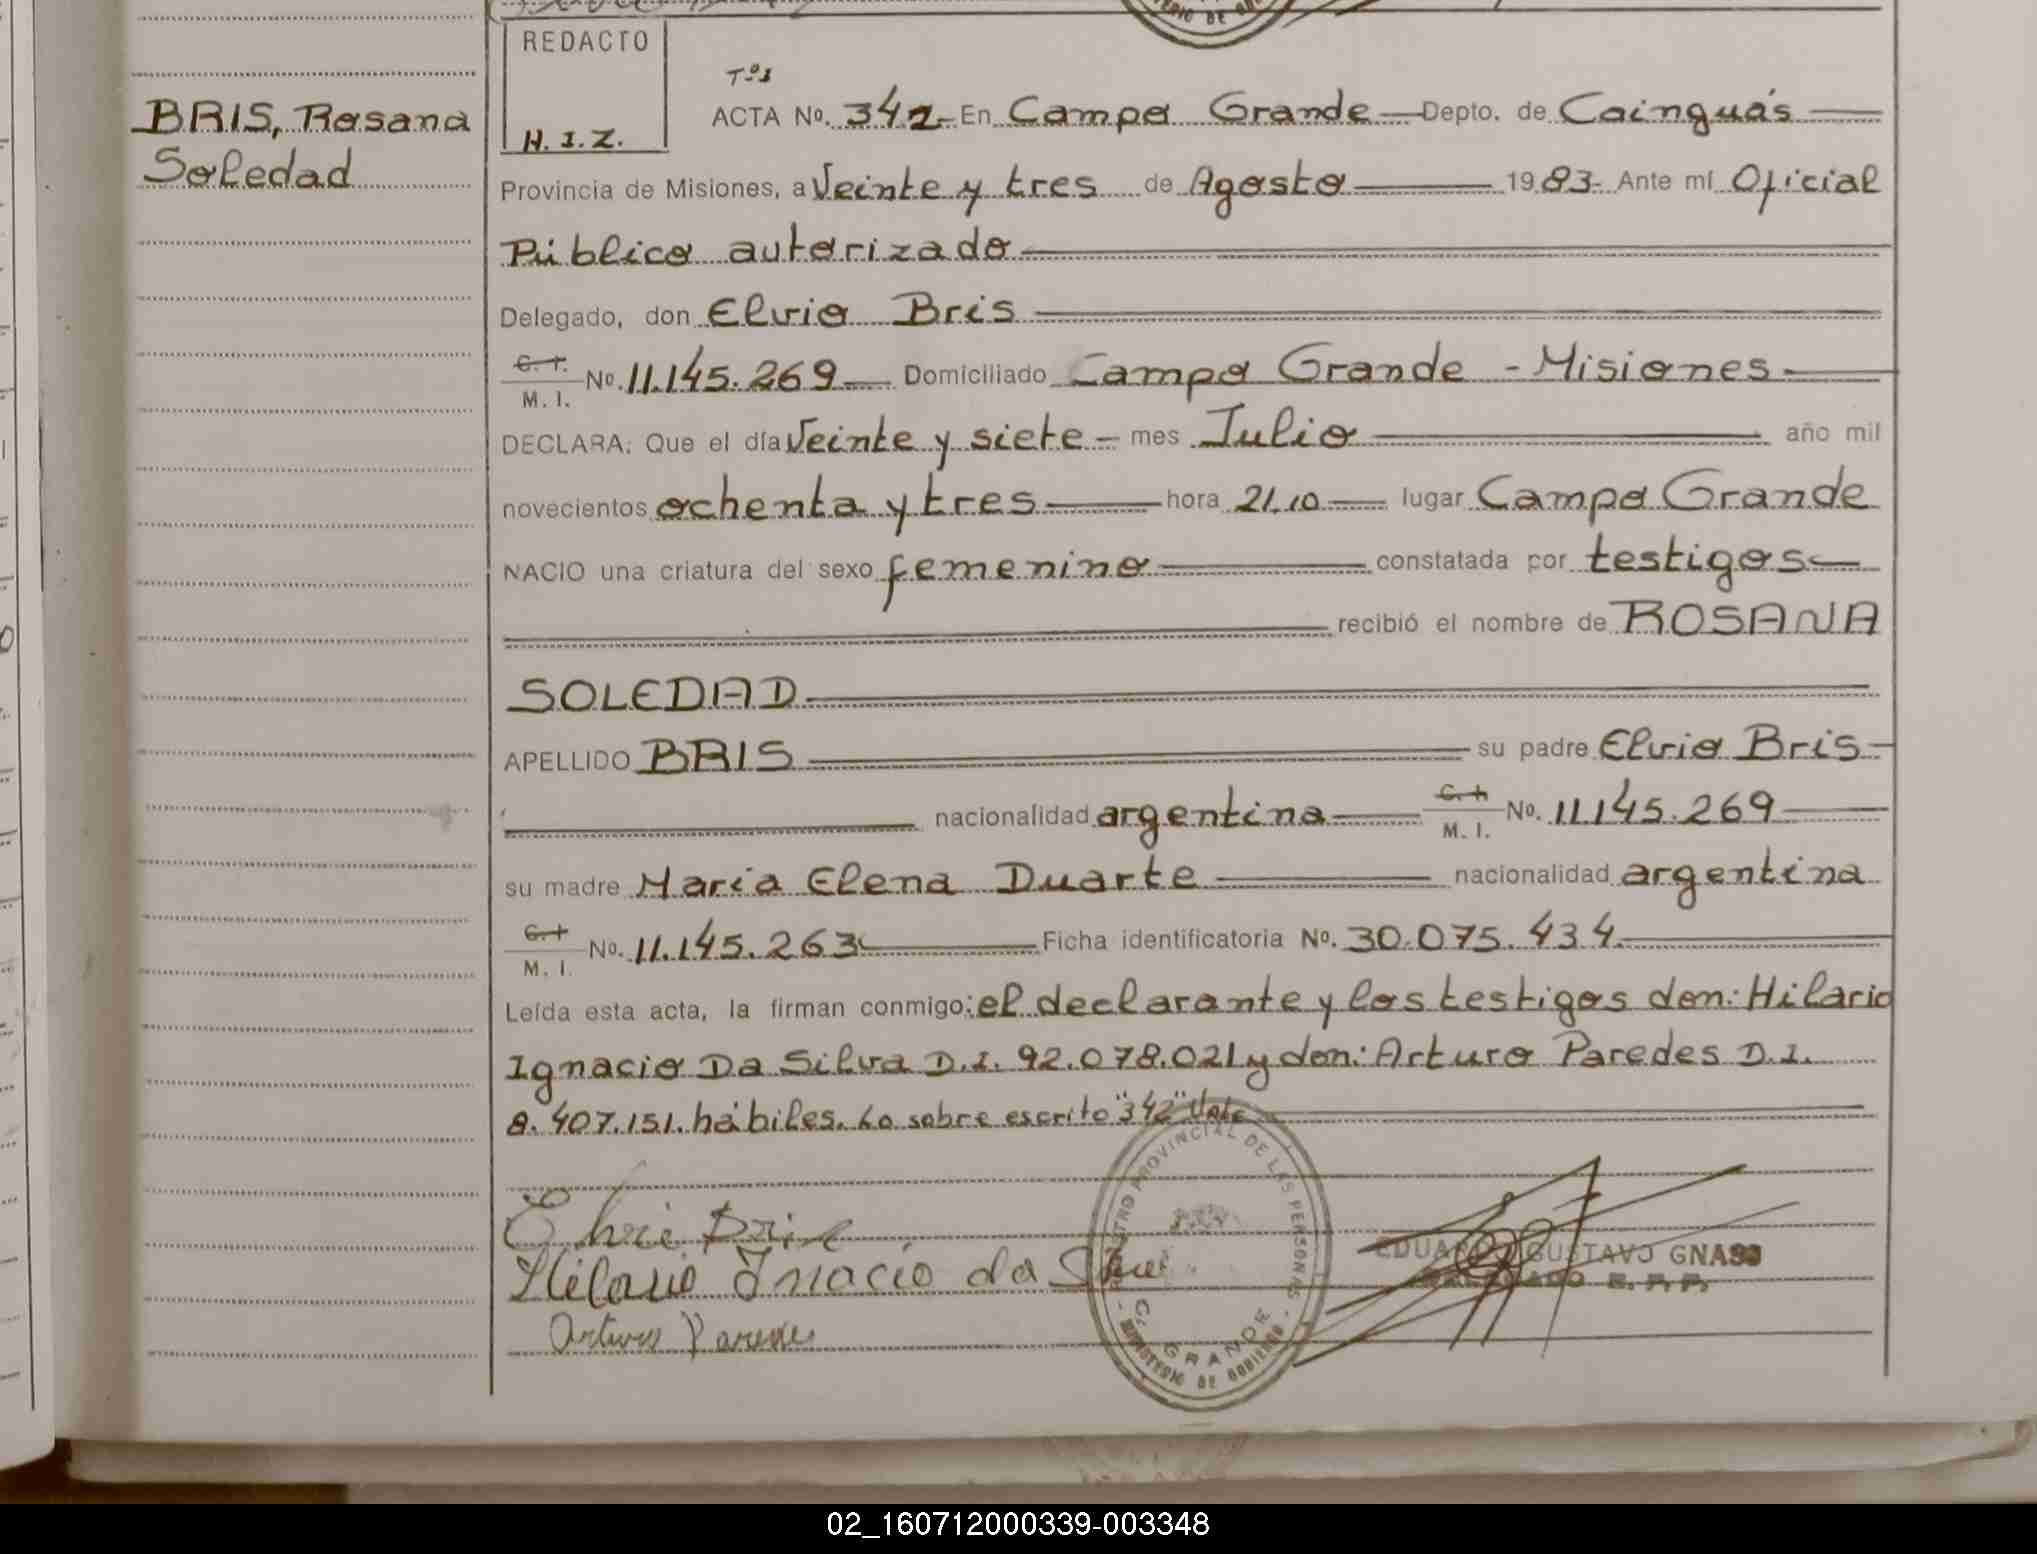 REDACTO
H. I. Z.
BRIS, Rosana
Soledad
Tº1
ACTA No. 342 En Campo Grande Depto. de Cainguás
Provincia de Misiones, a Veinte y tres de Agosto 1983. Ante mí Oficial
Público autorizado
Delegado, don Elvio Bris
C. I. M. I. No. 11.145.269 Domiciliado Campo Grande - Misiones
DECLARA: Que el día Veinte y siete mes Julio año mil
novecientos ochenta y tres hora 21,10 lugar Campo Grande
NACIO una criatura del sexo femenino constatada por testigos
recibió el nombre de ROSANA
SOLEDAD
APELLIDO BRIS su padre Elvio Bris
nacionalidad argentina C. I. M. I. No. 11.145.269
su madre Maria Elena Duarte nacionalidad argentina
C. I. M. I. No. 11.145.263 Ficha identificatoria No. 30.075.434
Leída esta acta, la firman conmigo: el declarante y los testigos don: Hilario
Ignacio Da Silva D.I. 92.078.021 y don: Arturo Paredes D.I.
8.407.151. hábiles. Lo sobre escrito "342" Vale
Elvio Bris
Hilario Ignacio da Silva
Arturo Paredes
REGISTRO PROVINCIAL DE LAS PERSONAS
C. GRANDE
MINISTERIO DE GOBIERNO
EDUARDO GUSTAVO GNASS
DELEGADO R. P. P.
02_160712000339-003348